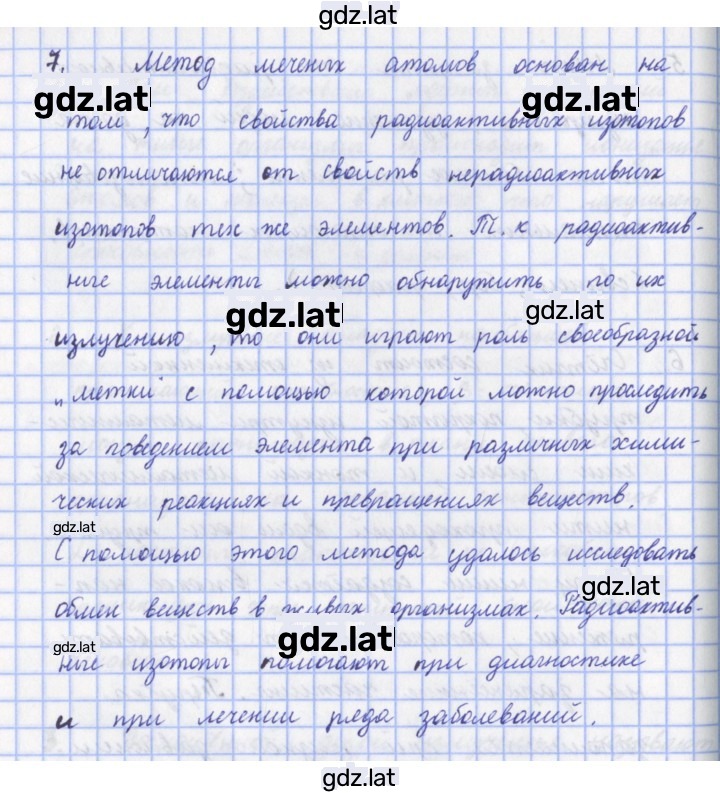 gdz.lat
7. Метод меченых атомов основан на
gdz.lat gdz.lat
том, что свойства радиоактивных изотопов
не отличаются от свойств нерадиоактивных
изотопов тех же элементов. Т.к радиоактив-
ные элементы можно обнаружить по их
gdz.lat gdz.lat
излучению, то они играют роль своеобразной
„метки" с помощью которой можно проследить
за поведением элемента при различных хими-
ческих реакциях и превращениях веществ.
gdz.lat
С помощью этого метода удалось исследовать
gdz.lat
обмен веществ в живых организмах. Радиоактив-
gdz.lat gdz.lat
ные изотопы помогают при диагностике
и при лечении ряда заболеваний.
gdz.lat